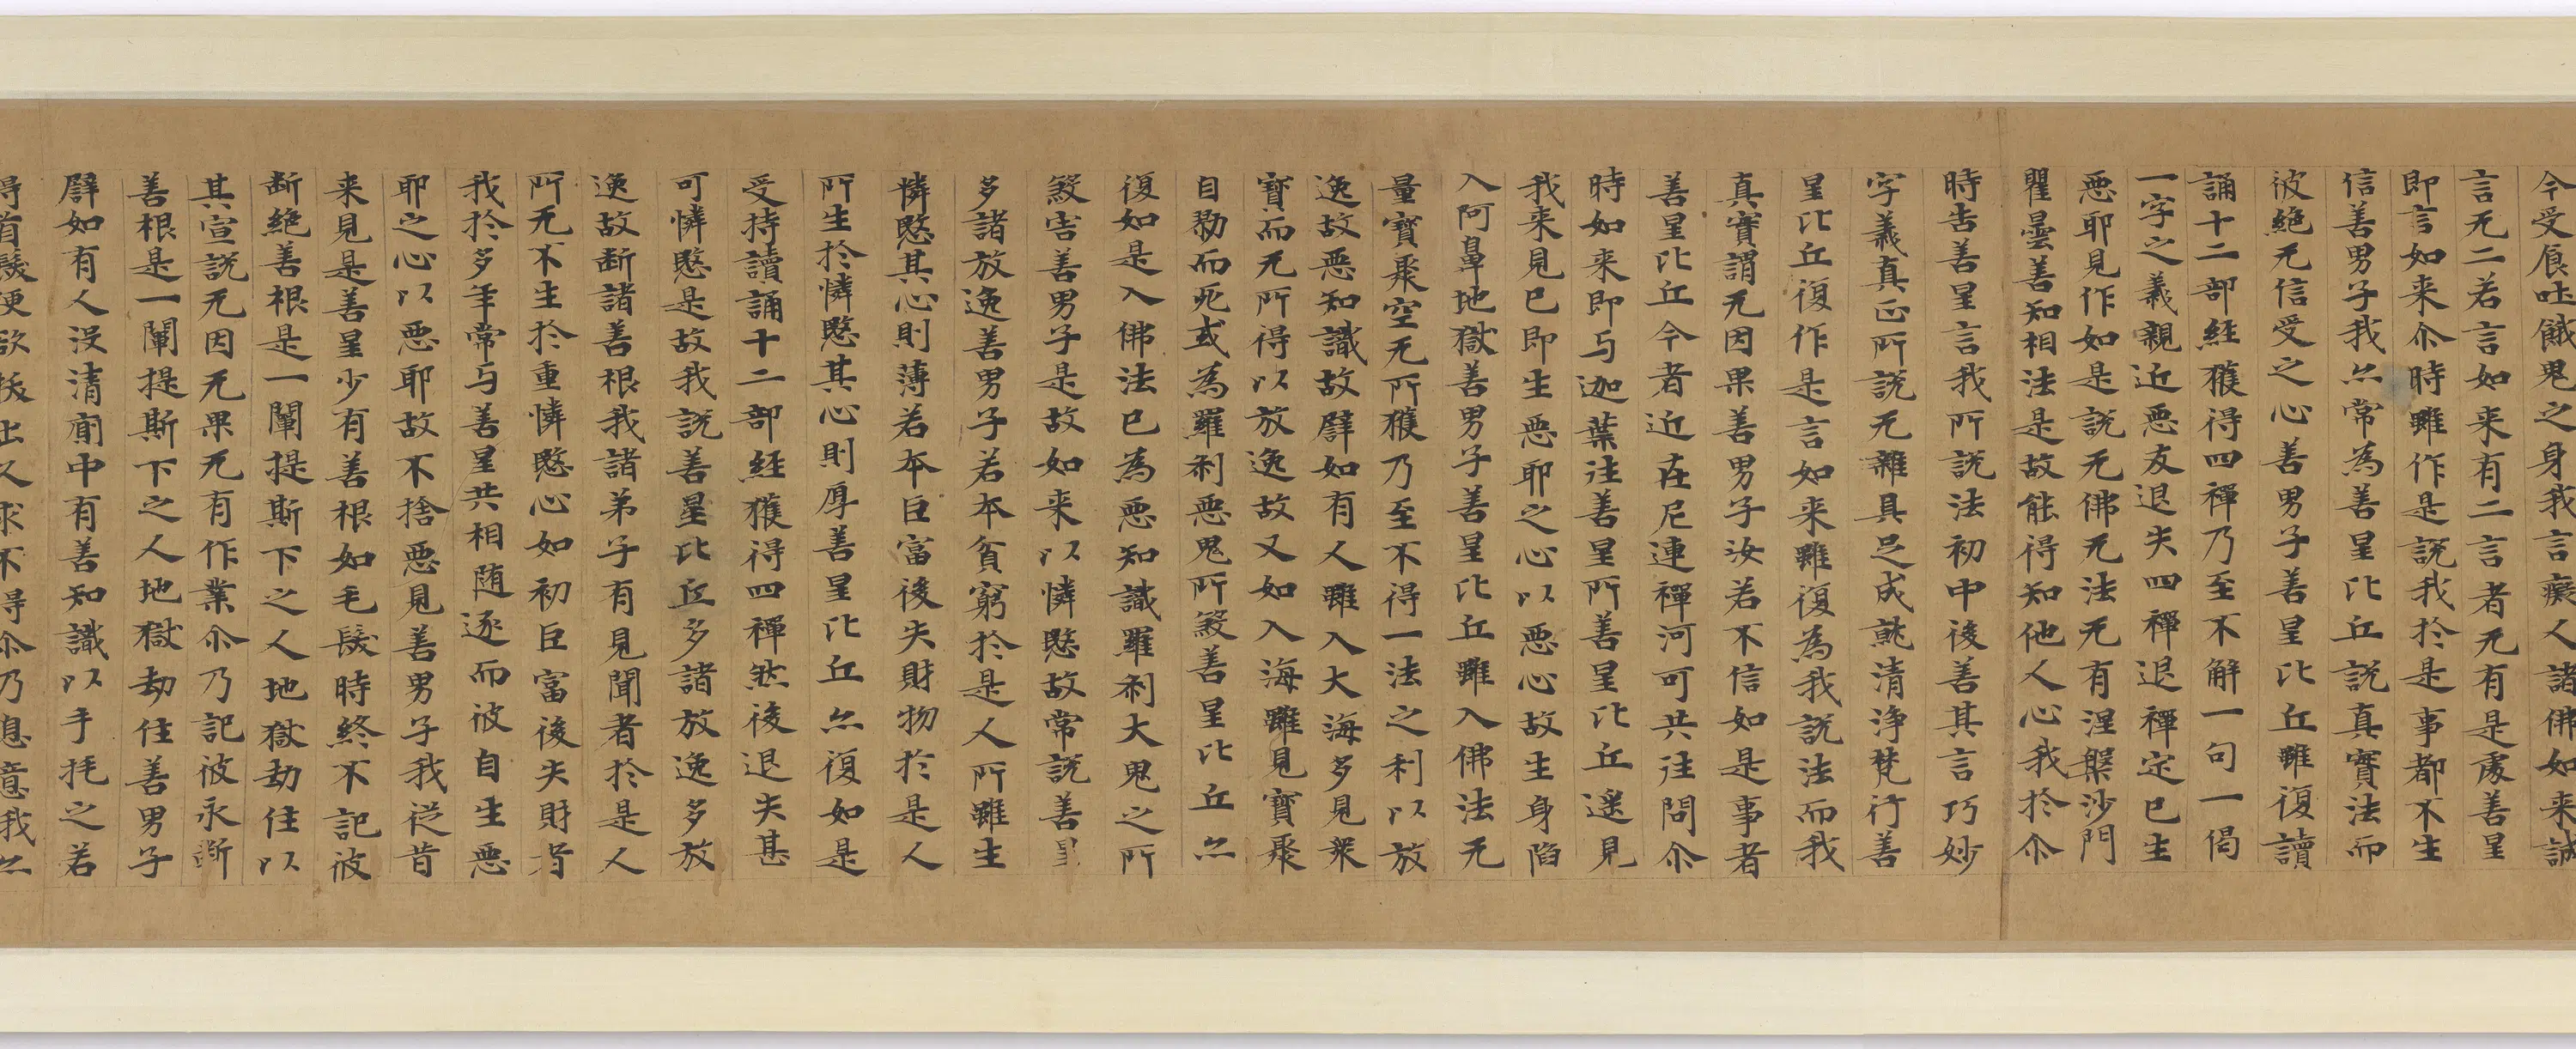 今受食吐餓鬼之身我言癡人諸佛如来誠
言无二若言如来有二言者无有是處善星
即言如来尒時雖作是說我於是事都不生
信善男子我亦常為善星比丘說真實法而
彼絕无信受之心善男子善星比丘雖復讀
誦十二部經獲得四禪乃至不解一句一偈
一字之義親近惡友退失四禪退禪定已生
惡耶見作如是說无佛无法无有涅槃沙門
瞿曇善知相法是故能得知他人心我於尒
時告善星言我所說法初中後善其言巧妙
字義真正所說无雜具足成就清淨梵行善
星比丘復作是言如来雖復為我說法而我
真實謂无因果善男子汝若不信如是事者
善星比丘今者近在尼連禪河可共往問尒
時如来即与迦葉往善星所善星比丘遙見
我来見已即生惡耶之心以惡心故生身陷
入阿鼻地獄善男子善星比丘雖入佛法无
量寶聚空无所獲乃至不得一法之利以放
逸故惡知識故譬如有人雖入大海多見衆
寶而无所得以放逸故又如入海雖見寶聚
自勠而死或為羅刹惡鬼所煞善星比丘亦
復如是入佛法已為惡知識羅刹大鬼之所
煞害善男子是故如来以憐愍故常說善星
多諸放逸善男子若本貧窮於是人所雖生
憐愍其心則薄若本巨富後失財物於是人
所生於憐愍其心則厚善星比丘亦復如是
受持讀誦十二部經獲得四禪然後退失甚
可憐愍是故我說善星比丘多諸放逸多放
逸故断諸善根我諸弟子有見聞者於是人
所无不生於重憐愍心如初巨富後失財者
我於多年常与善星共相随逐而彼自生惡
耶之心以惡耶故不捨惡見善男子我從昔
来見是善星少有善根如毛髮時終不記彼
断絕善根是一闡提斯下之人地獄劫住以
其宣說无因无果无有作業尒乃記彼永断
善根是一闡提斯下之人地獄劫住善男子
譬如有人没清廁中有善知識以手撓之若
得首髮便欲拔出久求不得尒乃息意我亦